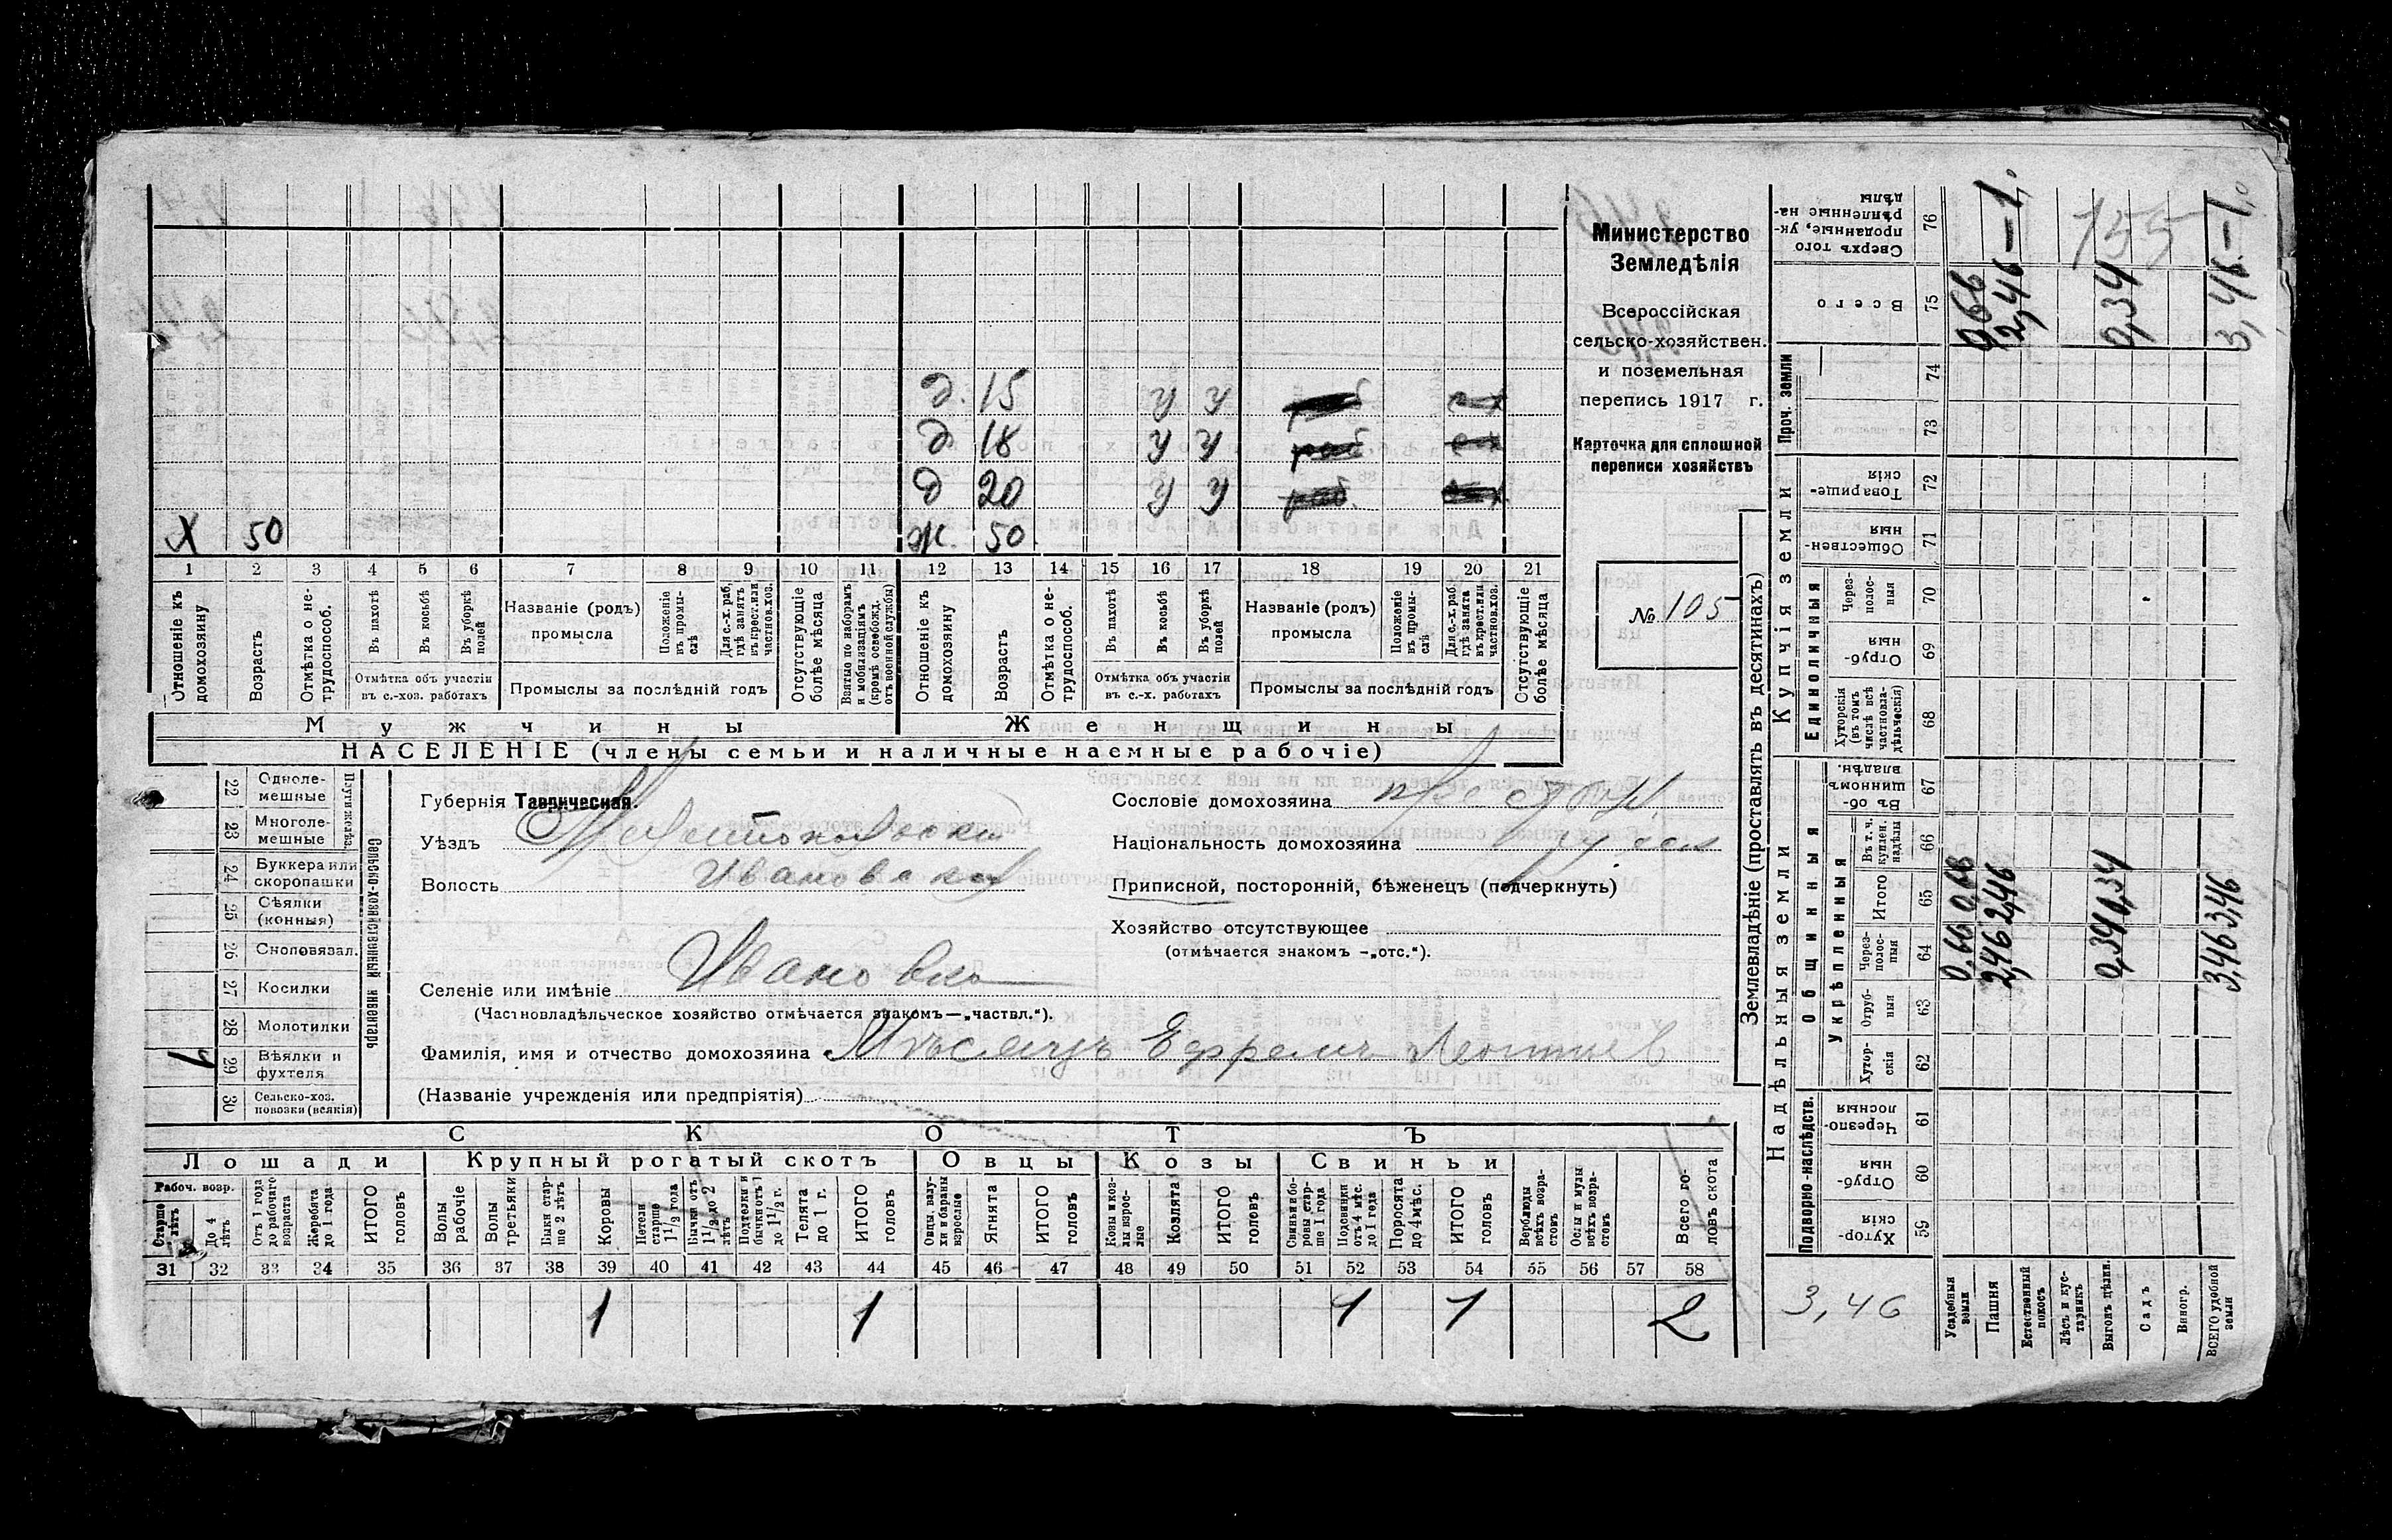 Министерство
Земледѣлія
Всероссійская
сельско-хозяйствен.
и поземельная
перепись 1917 г.
Карточка для сплошной
переписи хозяйствъ
№ 105
д. 15 у у
д 18 у у
д 20 у у
Х 50 ж. 50
1 2 3 4 5 6 7 8 9 10 11 12 13 14 15 16 17 18 19 20 21
Отношеніе къ домохозяину
Возрастъ
Отмѣтка о не-трудоспособ.
Въ пахотѣ
Въ косьбѣ
Въ уборкѣ полей
Отмѣтка объ участіи
въ с.-хоз. работахъ
Названіе (родъ)
промысла
Положеніе въ промы-слѣ
Для с.-х. раб, гдѣ занятъ въ крест. или частнов. хоз.
Промыслы за послѣдній годъ
Отсутствующіе болѣе мѣсяца
Взятые по наборамъ и мобилизаціямъ (кромѣ освобожд. отъ военной службы)
Отношеніе къ домохозяину
Возрастъ
Отмѣтка о не-трудоспособ.
Въ пахотѣ
Въ косьбѣ
Въ уборкѣ полей
Отмѣтка объ участіи
въ с.-х. работахъ
Названіе (родъ)
промысла
Положеніе въ промы-слѣ
Для с.-х. раб. гдѣ занята въ крест. или частнов. хоз.
Промыслы за послѣдній годъ
Отсутствующіе болѣе мѣсяца
Мужчины Женщины
НАСЕЛЕНІЕ (члены семьи и наличные наемные рабочіе)
22 Одноле-мешные
23 Многоле-мешные
Плуги желѣз.
24 Буккера или скоропашки
25 Сѣялки (конныя)
26 Сноповязал.
27 Косилки
28 Молотилки
29 Вѣялки и фухтеля 1
30 Сельско-хоз. повозки (всякія)
Сельско-хозяйственный инвентарь
Губернія Таврическая.
Уѣздъ Мелитопольски
Волость Ивановская
Селеніе или имѣніе Ивановка
(Частновладѣльческое хозяйство отмѣчается знакомъ—„частвл.“).
Фамилія, имя и отчество домохозяина Мѣсяцъ Ефремъ Леонтьев
(Названіе учрежденія или предпріятія)
Сословіе домохозяина
Національность домохозяина
Приписной, посторонній, бѣженецъ (подчеркнуть)
Хозяйство отсутствующее
(отмѣчается знакомъ -„отс.“).
СКОТЪ
Лошади Крупный рогатый скотъ Овцы Козы Свиньи
Рабоч. возр.
До 4 лѣтъ
Отъ 1 года до рабочаго возраста
Жеребята до 1 года
ИТОГО головъ
Волы рабочіе
Волы третьяки
Быки стар-ше 2 лѣтъ
Коровы
Нетели старше 1 1/2 года
Бычки отъ 1 1/2 до 2 лѣтъ
Подтелки и бычки отъ 1 до 1 1/2 г.
Телята до 1 г.
ИТОГО головъ
Овцы, валу-хи и бараны взрослые
Ягнята
ИТОГО головъ
Козы и коз-лы взрос-лые
Козлята
ИТОГО головъ
Свиньи и бо-ровы стар-ше 1 года
Подсвинки отъ 4 мѣс. до 1 года
Поросята до 4 мѣс.
ИТОГО головъ
Верблюды всѣхъ возра-стовъ
Ослы и мулы всѣхъ возра-стовъ
Всего го-ловъ скота
31 32 33 34 35 36 37 38 39 40 41 42 43 44 45 46 47 48 49 50 51 52 53 54 55 56 57 58
1 1 1 1 2
Землевладѣніе (проставлять въ десятинахъ)
Надѣльныя земли Купчія земли Проч. земли
Подворно-наслѣдств. Общинныя Единоличныя
Укрѣпленныя
Хутор-скія 59
Отруб-ныя 60
Черезпо-лосныя 61
Хутор-скія 62
Отруб-ныя 63
Через-полос-ныя 64
Итого 65
Въ т. ч. куплен. надѣлы 66
Въ об-щинномъ владѣн. 67
Хуторскія (въ томъ числѣ всѣ частновла-дѣльческія) 68
Отруб-ныя 69
Через-полос-ныя 70
Обществен-ныя 71
Товарище-скія 72
73
74
Всего 75
Сверхъ того проданные, ук-рѣпленные на-дѣлы 76
3,46
Усадебныя земли 0,66 0,66 0,66
Пашня 2,46 2,46 2,46 — 1,
Естественный покосъ
Лѣсъ и кус-тарникъ
Выгонъ цѣлин. 0,34 0,34 0,34
Садъ
Виногр.
ВСЕГО удобной земли 3,46 3,46 3,46 — 1,
155